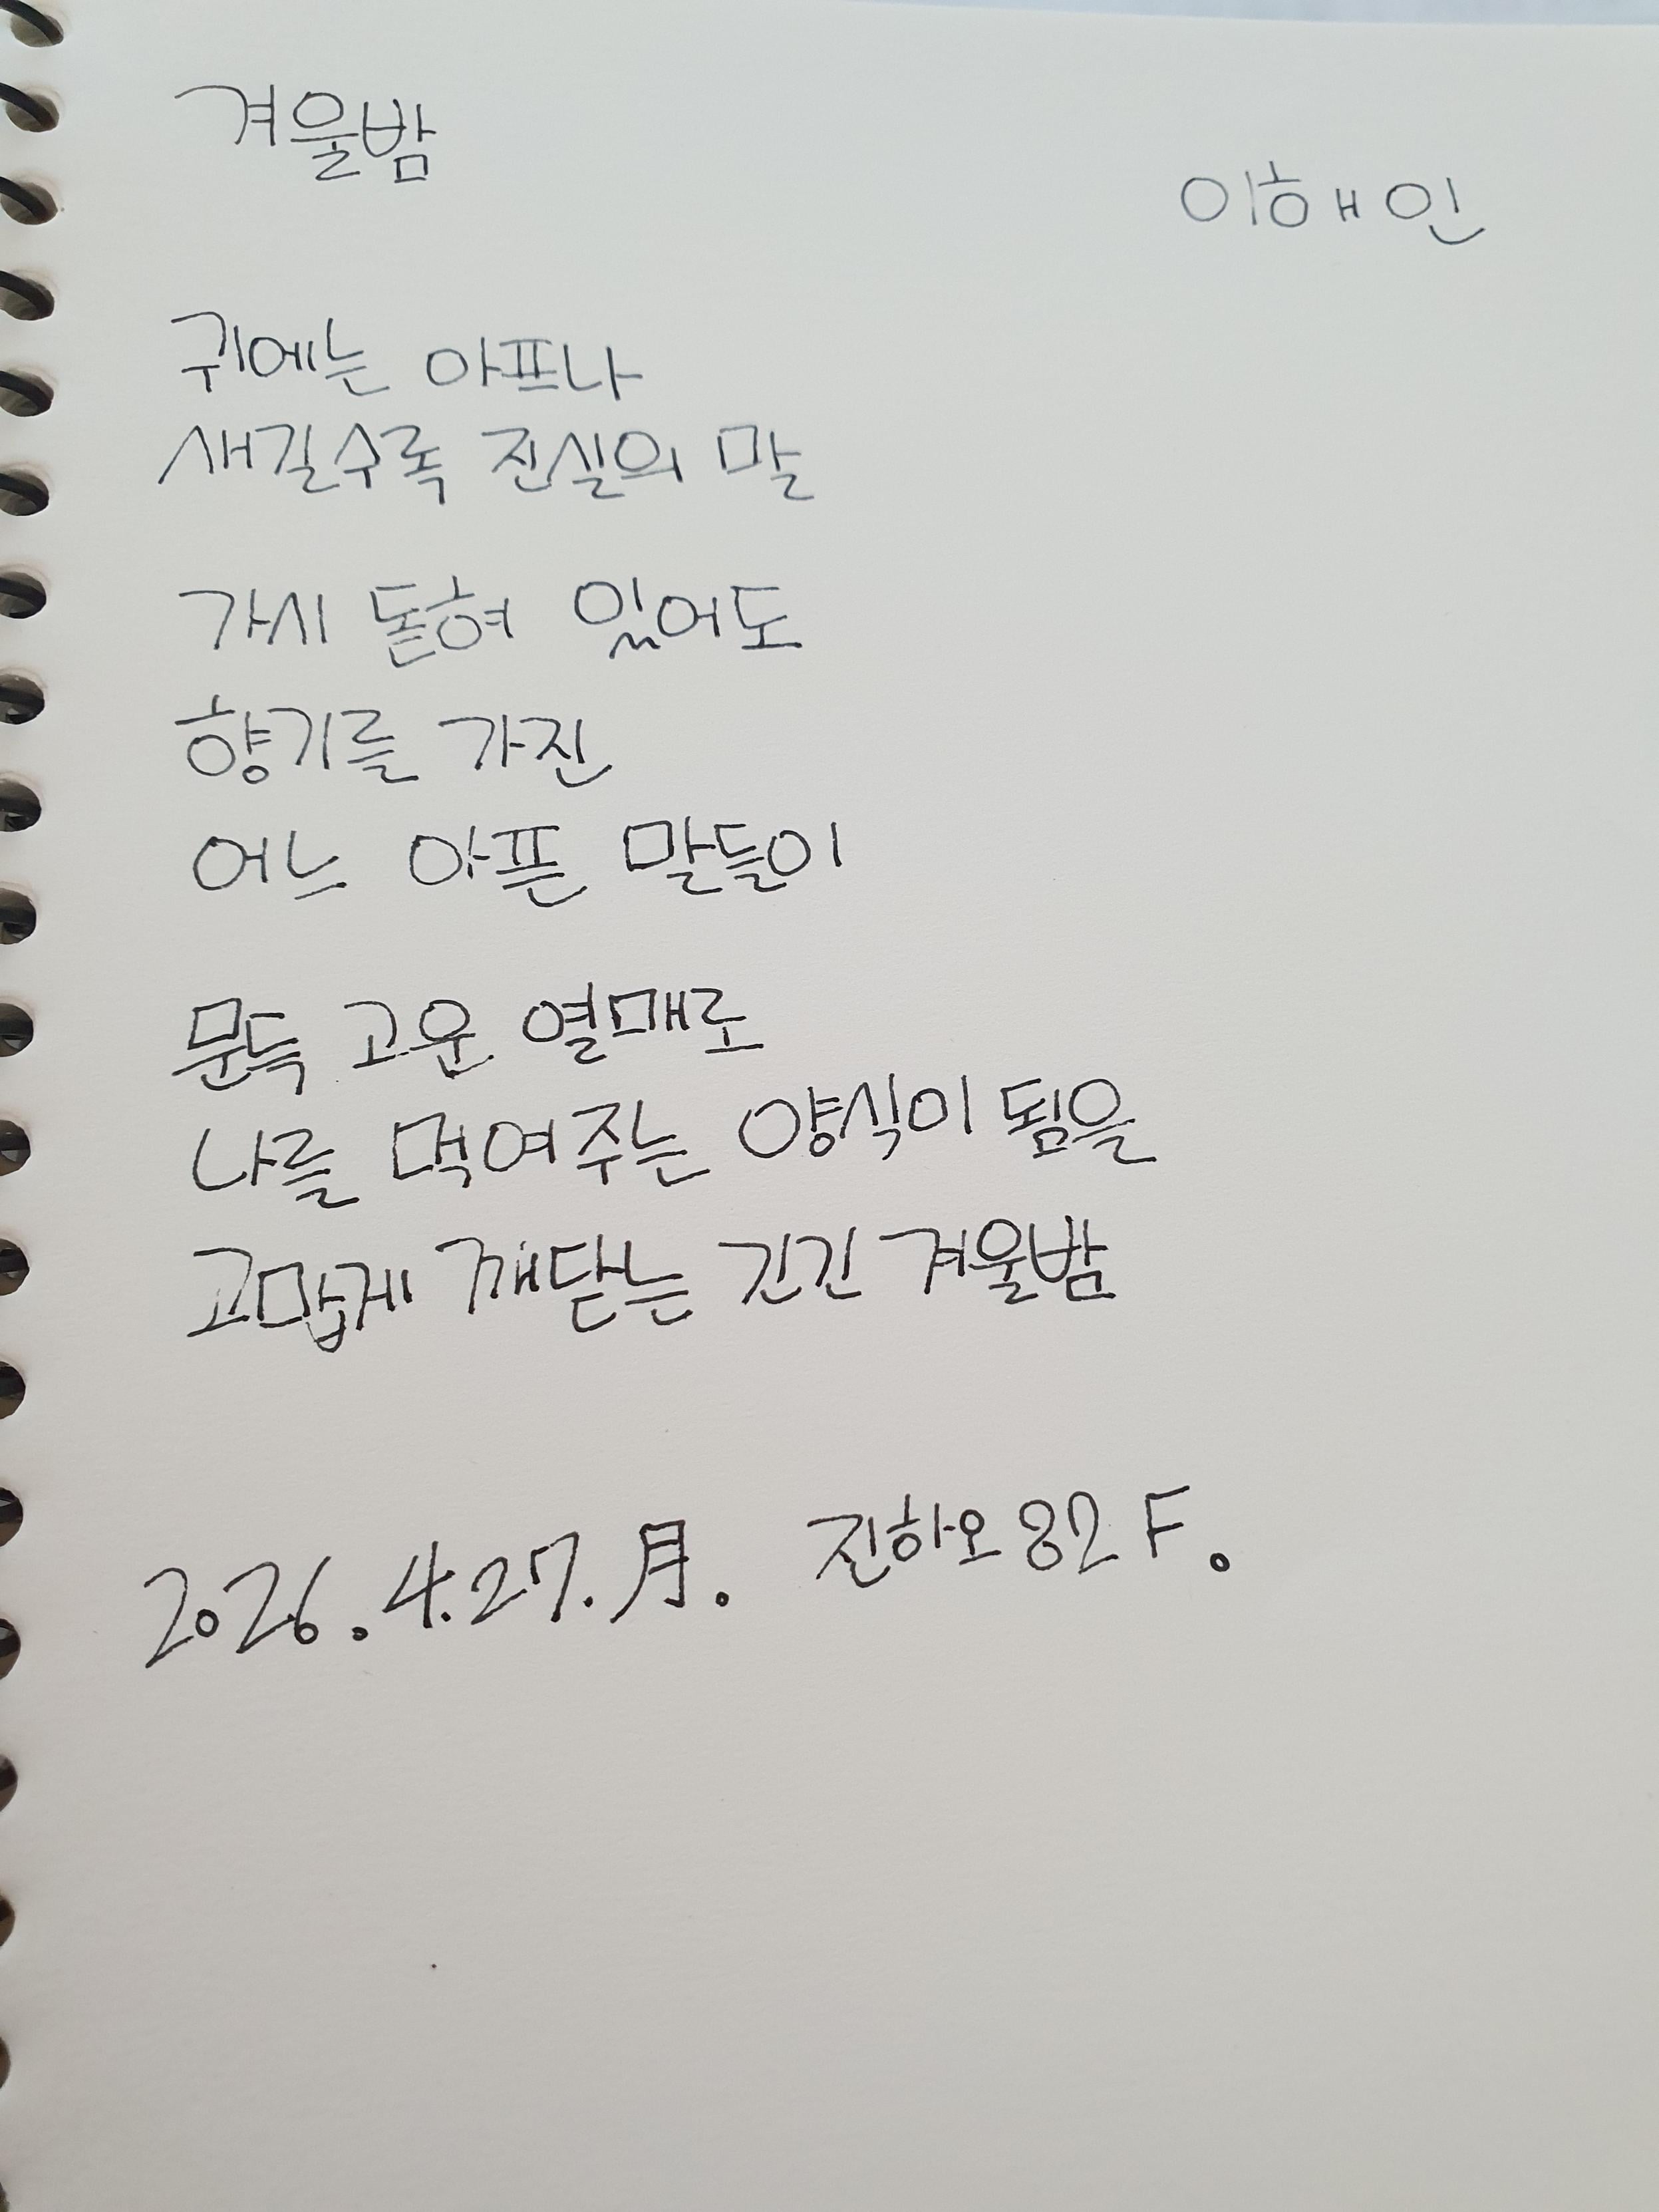 겨울밤
이해인
귀에는 아프나
새길수록 진실의 말
가시 돋혀 있어도
향기를 가진
어느 아픈 말들이
문득 고운 열매로
나를 먹여주는 양식이 됨을
고맙게 깨닫는 긴긴 겨울밤
2026.4.27.月. 진하오82F.